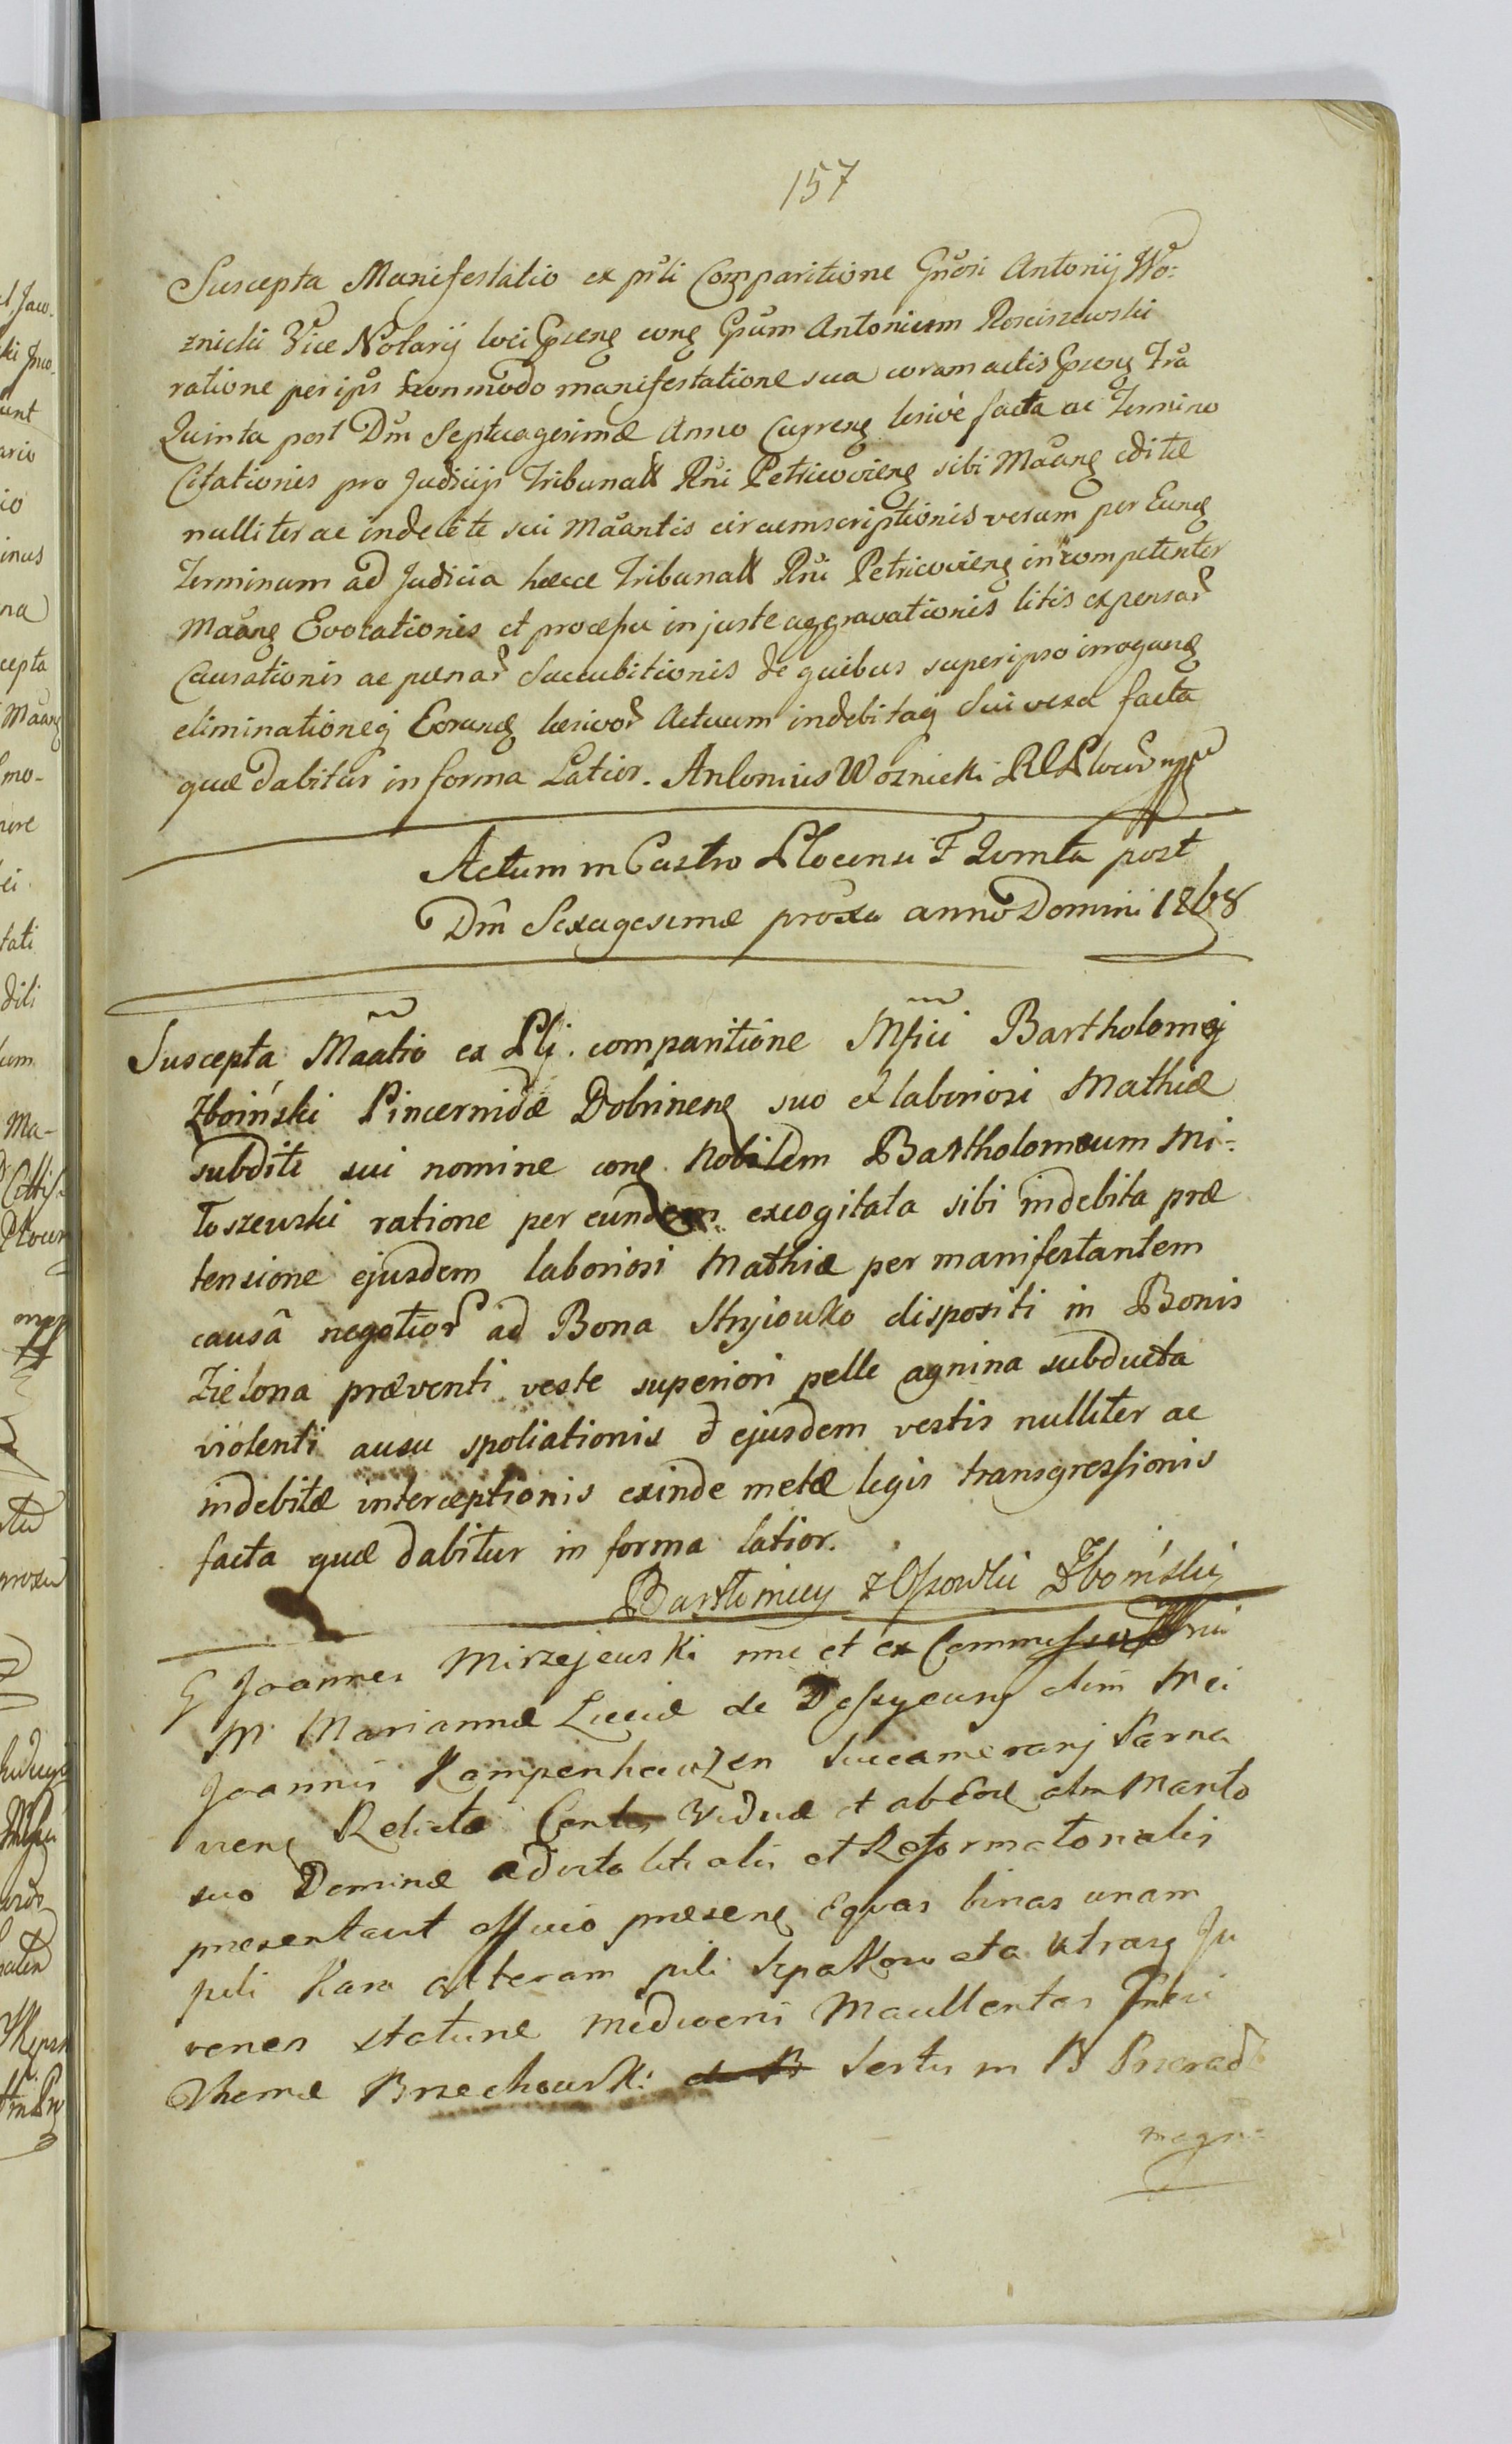 157
Suscepta Manifestatio ex prsli Comparitione Gnosi Antonij Wo=
znicki Vice Notarij loci Gpsens cong Gsum Antonium Rosciszewski
ratione per ips nonmodo manifestatione sua coram actis Gpsens Fra
Quinta post Dm Septuagesimæ Anno Currens lesive facta ac Termino
Citationis pro Judicijs Tribunall Rni Petricoviens sibi Maang editæ
nulliter ac indebite sui Maantis circumscriptionis verum per Eund
Terminum ad Judicia hæcce Tribunall Rni Petricoviens incompetenter
Maang Evocationis et processu injuste aggravationis litis expensar
Causationis ac pœnar Succubitionis de quibus super ipso irrogand
eliminationeq Eorund læsivor Actuum indebitaq sui vexa facta
quæ dabitur in forma Latior. Antonius Woznicki
Actum in Castro Plocensi F Quinta post
Dm Sexagesimæ proxa anno Domini 1768
Suscepta Maatio ex Pli. comparitione Mfici Bartholomej
Zboiński Pincernidæ Dobrinens suo et laboriosi Mathiæ
subditi sui nomine cong Nobilem Bartholomæum Mi=
łoszewski ratione per eundem excogitata sibi indebita præ
tensione ejusdem laboriosi Mathiæ per manifestantem
causâ negotior ad Bona Stryiowko dispositi in Bonis
Zielona præventi veste superiori pelle agnina subducta
violenti ausu spoliationis d ejusdem vestis nulliter ac
indebitæ interceptionis exinde metæ legis transgressionis
facta quæ dabitur in forma latior.
Bartłomiey z Ossowki Zboiński
G Joannes Mirzejewski nne et ex Commisse
M Mariannæ Luciæ de olim Mci
Joannis Kampenhauzen Succamerarij Parna
viens Relictæ Viduæ et ab olim Marito
suo Dominæ advitalitialis et Reformatorialis
presentavit officio præsens Equas binas unam
pili Kara alteram pili Szpakowata utrasq Ju
venes staturæ mediocris Macullentas
Thomæ Brzechowski in B
magn=